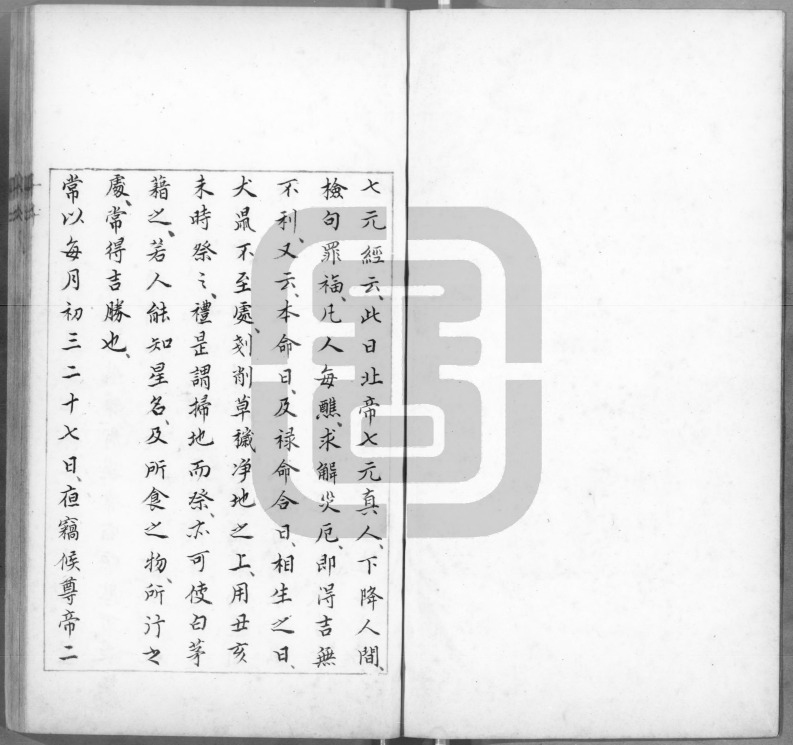 七元經云、此日北帝七元真人、下降人間、
檢句罪福、凡人每醮、求解災厄、即得吉無
不利、又云、本命日、及祿命合日、相生之日、
犬鼠不至處、刻削草穢淨地之上、用丑亥
未時祭之、禮是謂掃地而祭、亦可使白茅
藉之、若人能知星名、及所食之物、所行之
處、常得吉勝也、
常以每月初三二十七日、夜竊候尊帝二